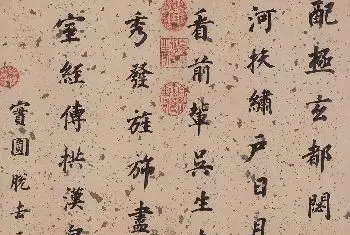 配極玄都閟
河扶繡户日月
看前輩吳生
秀發旌斾盡
室經傳拱漢皇
寳圓脱去